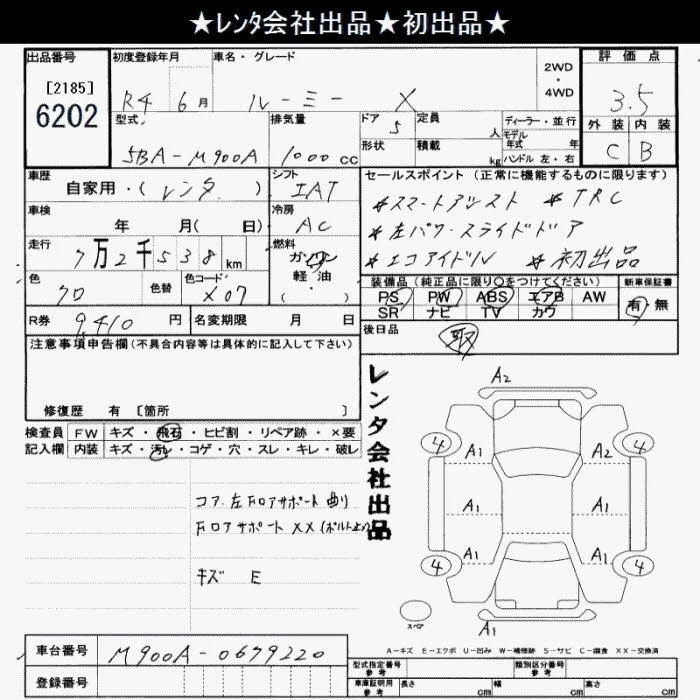 ★レンタ会社出品★初出品★
出品番号
[2185]
6202
初度登録年月
R4 6月
車名・グレード
ルーミー X
2WD
・
4WD
評価点
3.5
外装 内装
C B
型式
5BA-M900A
排気量
1000 cc
ドア
5
定員
人
形状
積載
kg
ディーラー・並行
モデル
年式 年
ハンドル 左・右
車歴
自家用・( レンタ )
シフト
IAT
車検
年 月( 日)
冷房
AC
走行
7万2千538km
燃料
ガソリン
軽油
・( )
色
クロ
色替
色コード
X07
R券
9,410円
名変期限 月 日
セールスポイント (正常に機能するものに限ります)
*スマートアシスト *TRC
*左パワースライドドア
*エコアイドル *初出品
装備品 (純正品に限り○をつけてください)
PS PW ABS エアB AW
SR ナビ TV カワ
新車保証書
有・無
後日品
取
注意事項申告欄 (不具合内容等は具体的に記入して下さい)
修復歴 有 [箇所 ]
検査員
記入欄
FW キズ・飛石・ヒビ割・リペア跡・×要
内装 キズ・汚レ・コゲ・穴・スレ・キレ・破レ
コア左Fロアサポート曲り
Fロアサポート××(ボルト止メ)
キズ E
レンタ会社出品
A2
4 4
A1 A2
A1 A1
A1 A1
4 4
A1
スペア
A-キズ E-エクボ U-凹み W-補修跡 S-サビ C-腐食 XX-交換済
車台番号
M900A-0679220
登録番号
型式指定番号
参考
類別区分番号
参考
車庫証明用
参考
長さ cm 幅 cm 高さ cm